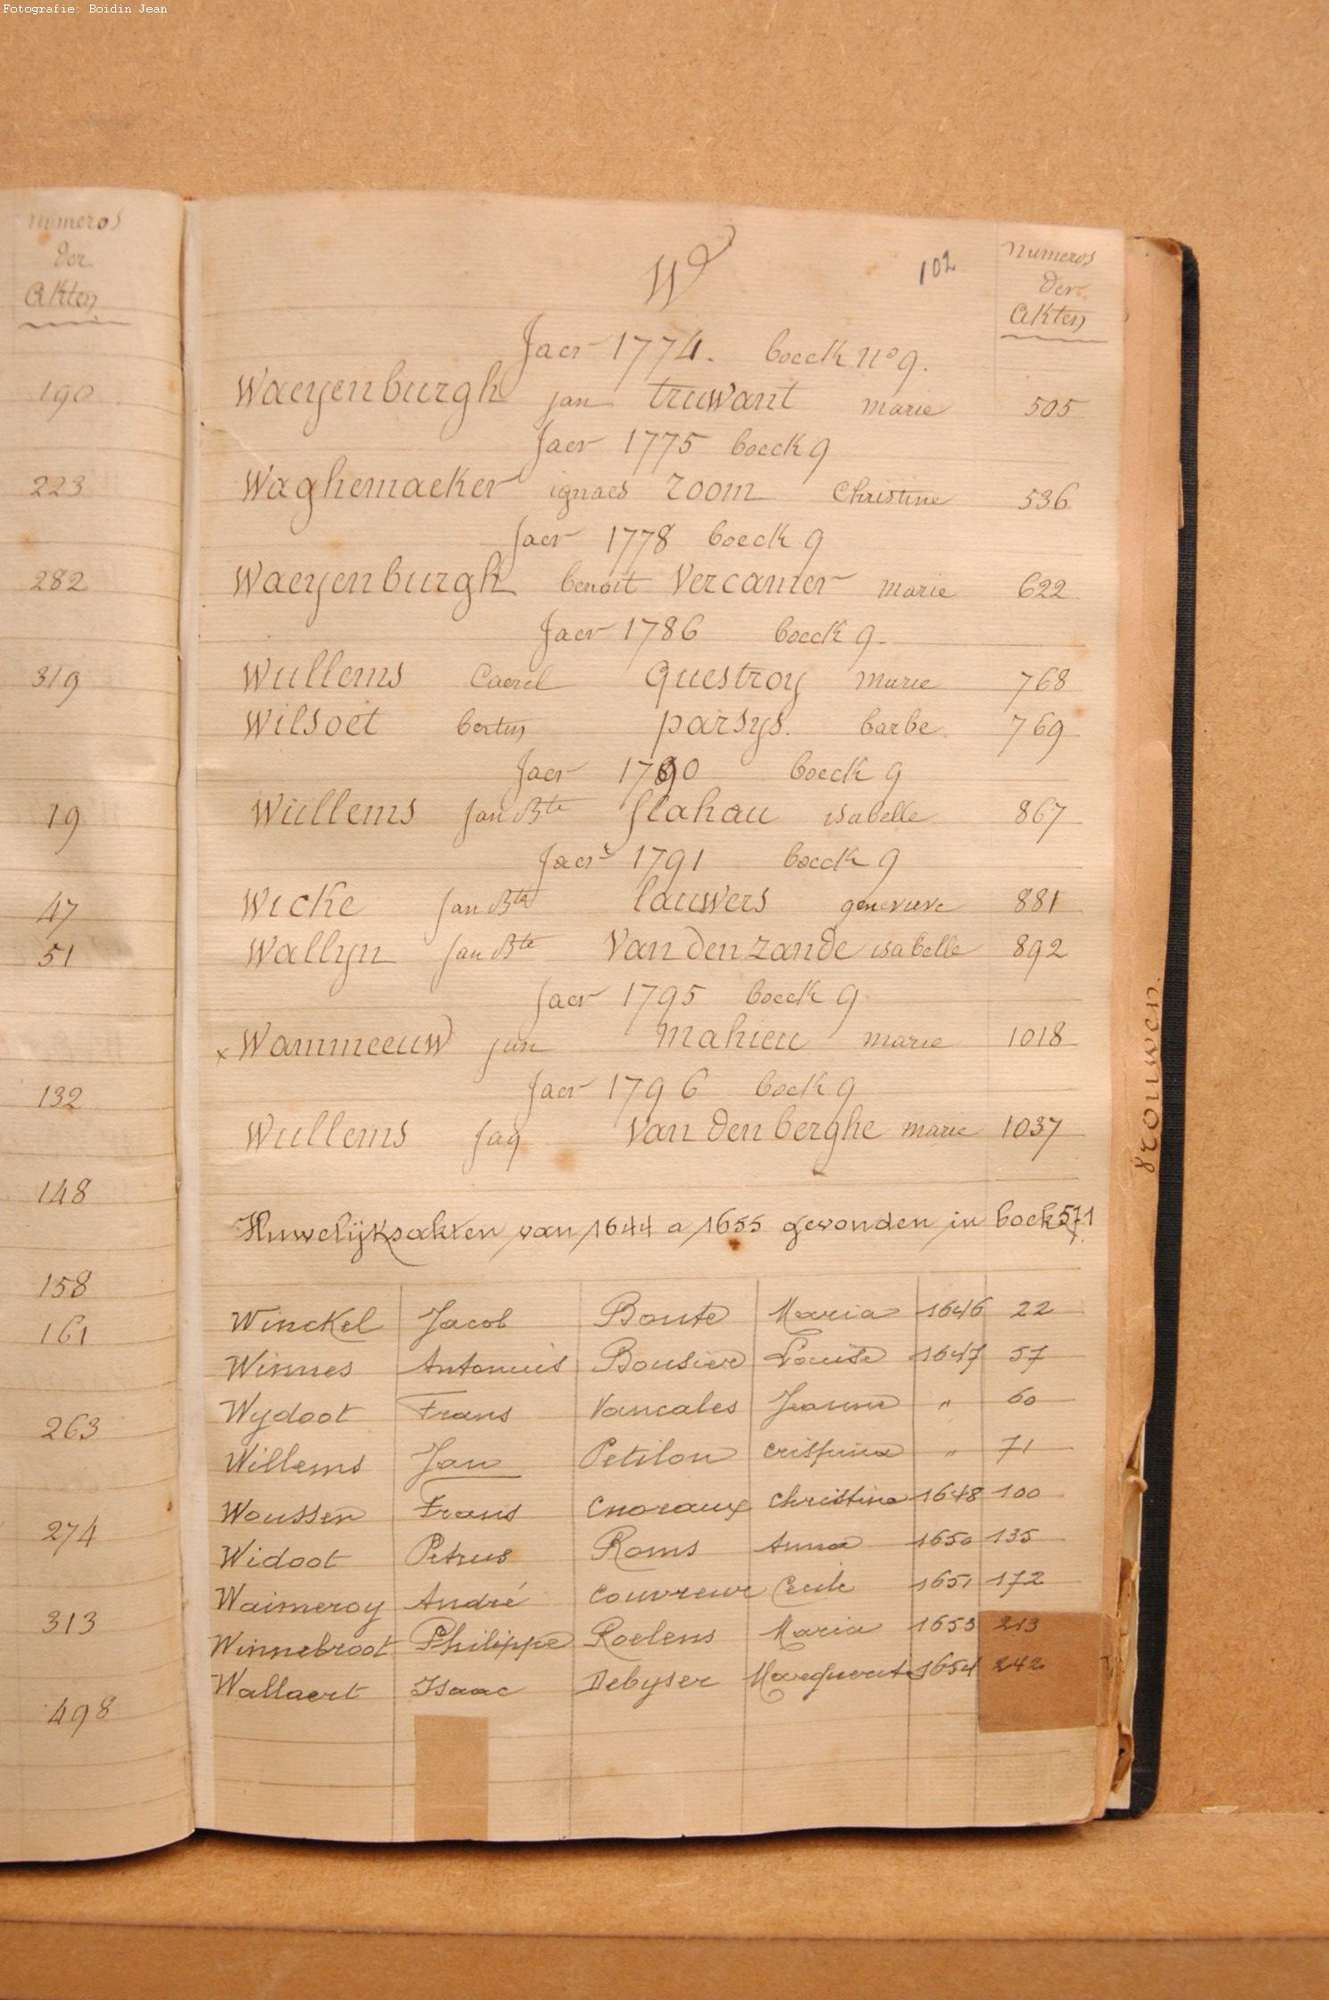 Fotografie: Boidin Jean
numeros
der
Akten
190
223
282
319
19
47
51
132
148
158
161
263
274
313
498
W
102
numeros
der
Akten
Jaer 1774. boeck no 9.
Waeyenburgh jan truwant marie 505
Jaer 1775 boeck 9
Waghemaeker ignaes room Christine 536
Jaer 1778 boeck 9
Waeyenburgh benoit Vercamer marie 622
Jaer 1786 boeck 9
Wullems Caerel Questroy marie 768
Wilsoet bertin parsys. barbe 769
Jaer 1790 boeck 9
Wullems jan Bte flahau isabelle 867
Jaer 1791 boeck 9
Wicke jan Bte lauwers genevieve 881
Wallyn jan Bte Van den zande isabelle 892
Jaer 1795 boeck 9
x Wammeeuw jan mahieu marie 1018
Jaer 1796 boek 9
Wullems jaq Van den berghe marie 1037
Huwelijksakten van 1644 a 1655 gevonden in boek 571
Winckel Jacob Boute Maria 1646 22
Winnes Antonius Bousier Louise 1647 57
Wydoot Frans Vancales Jeanne " 60
Willems Jan Petilon crispina " 71
Woussen Frans Cnoraux christina 1648 100
Widoot Petrus Roms Anna 1650 135
Waimeroy André Couvreur Cecile 1651 172
Winnebroot Philippe Roelens Maria 1653 213
Wallaert Isaac Debyser Marguerite 1654 242
vrouwen.